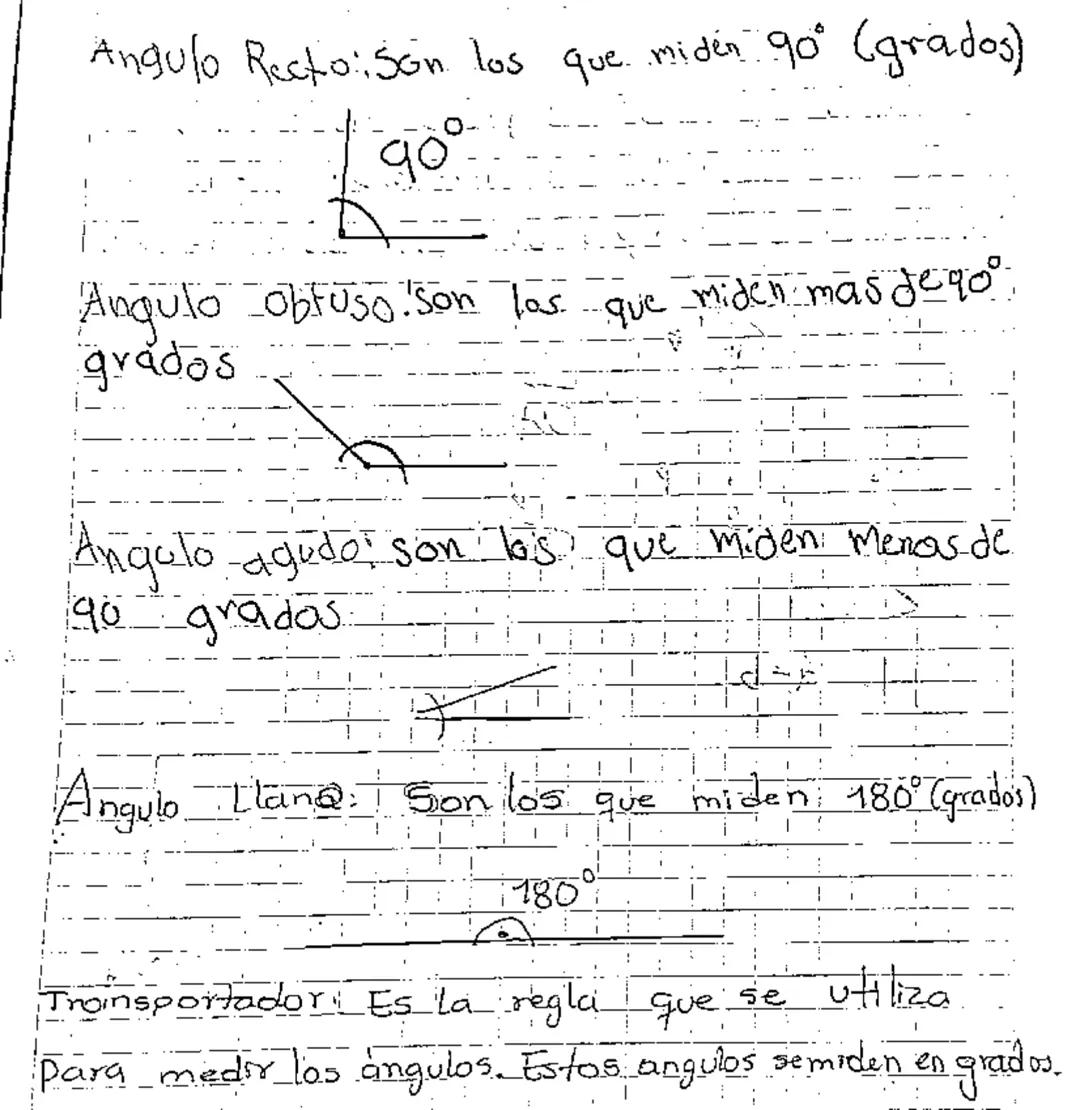 Angulo Recto: Son los que miden 90° (grados)
90°
Angulo obtuso: son los que miden mas de 90°
grados
Angulo agudo: son los que miden menos de
90 grados
Angulo Llano: Son los que miden 180° (grados)
180°
Transportador: Es la regla que se utiliza
para medir los ángulos. Estos angulos se miden en grados.